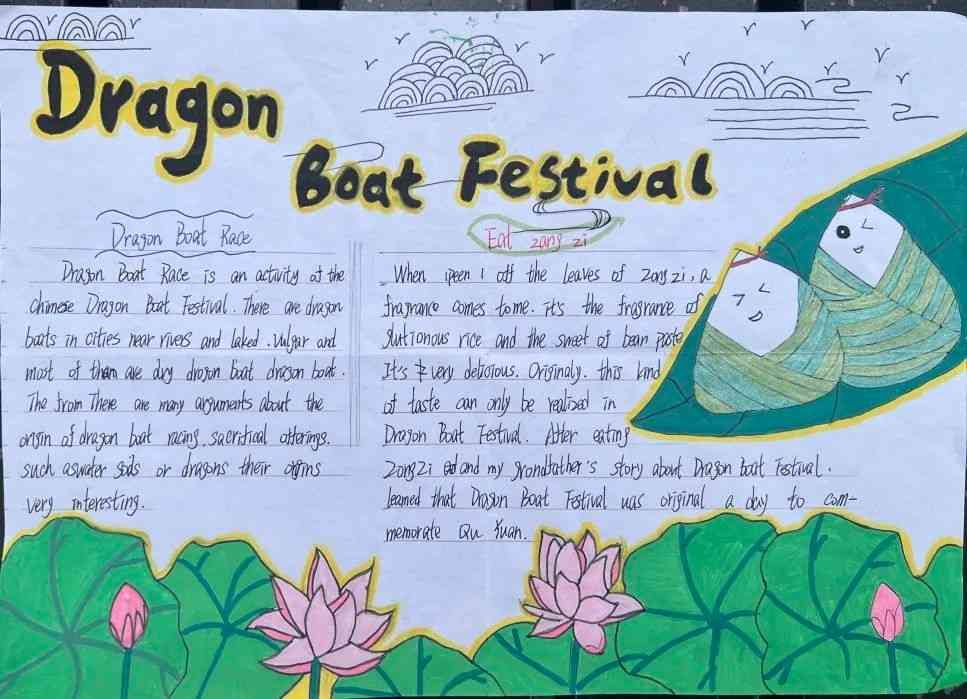 Dragon
Boat Festival
Dragon Boat Race
Dragon Boat Race is an activity of the
Chinese Dragon Boat Festival. There are dragon
boats in cities near rivers and laked. Vulgar and
most of tham are dry dragon boat dragon boat.
The from There are many arguments about the
origin of dragon boat racing. sacrificial offerings.
such aswater gods or dragons their origins
very interesting.
Eat zang zi
When ipeen I off the leaves of zong zi, a
fragrance comes to me. it's the fragrance of
glutionous rice and the sweet of bean paste
It's very delicious. Originaly. this kind
of taste can only be realized in
Dragon Boat Festival. After eating
zong zi and my grandfather's story about Dragon Boat Festival.
learned that Dragon Boat Festival was original a day to com-
memorate Qu Yuan.